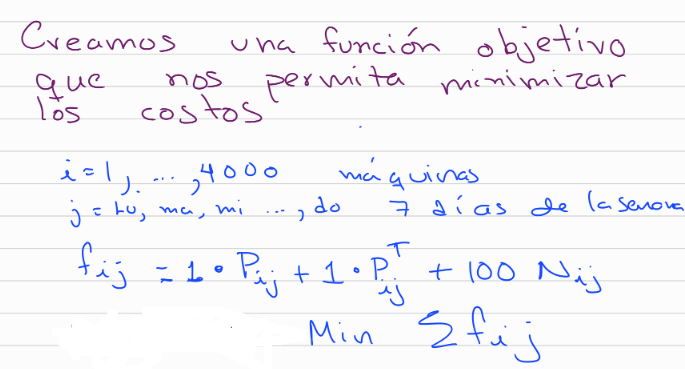 Creamos una función objetivo
que nos permita minimizar
los costos
i = 1, ..., 4000 máquinas
j = Lu, ma, mi ..., do 7 días de la semana
fij = 1 • Pij + 1 • Pij^T + 100 Nij
Min Σfij